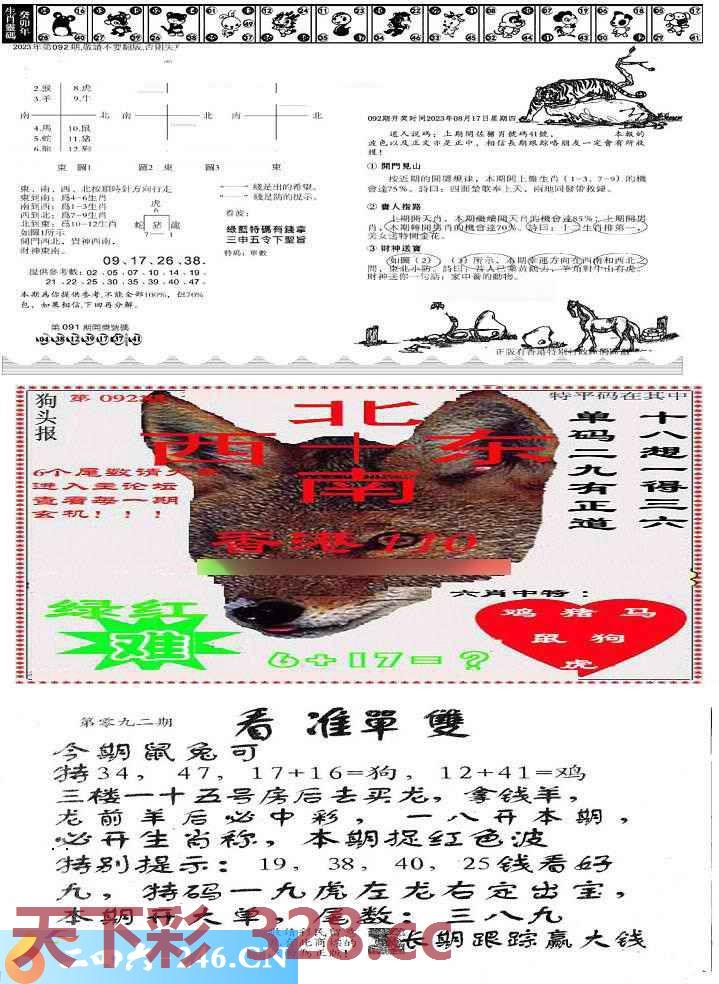 癸卯年
生肖靈碼
2023年第092期,敬請不要翻版,否則失尸
2.猴 8.虎
3.羊 9.牛
南 北 南 北 南 北
4.馬 10.鼠
5.蛇 11.豬
6.龍 12.狗
東 圖1 圖2 東 圖3 東
東、南、西、北按順時針方向行走
東到南：爲4-6生肖
南到西：爲1-3生肖
西到北：爲7-9生肖
北到東：爲10-12生肖
如圖1所示
開門西北，貴神西南，
財神東南。
虎
6
蛇 豬 龍
7 1
綫是出的希望。
綫是防的提示。
看波：
綠藍特碼有錢拿
三申五令下聖旨
特碼：單數
09.17.26.38.
提供參考數：02.05.07.10.14.19
21.22.25.30.35.39.40.47.
本期爲你提供參考,不能全部100%，但70%
包，如果相信,下回再分解。
第091期開獎號碼
04 38 12 39 17 37 41
092期开奖时间2023年08月17日星期四
道人說碼：上期開估豬肖號碼41號， 本報的
波色以及正文亦是正中，相信長期跟踪咯朋友一定會有所收
穫！
① 開門見山
按近期的開獎規律，本期開上盤生肖（1-3，7-9）的機
會達75%。詩曰：四面楚歌奉上天，兩地同發帶救緣。
② 貴人指路
上期開天肖，本期繼續開天肖的機會達85%；上期開男
肖，本期轉開男肖的機會達70%。詩曰：十二生肖排第一，
美女送特開金花。
③ 財神送寶
如圖（2）（3）所示，本期幸運方向在西南和西北之
間，東北小防。
財神送你一句話：家中養的動物。
狗头报
第 092期
北
西 十 东
南
香港110
6个尾数请大
进入主论坛
查看每一期
玄机！！！
特平码在其中
十八想一得三六
单码二九有正道
绿红
难
6+17=？
六肖中特：
鸡 猪 马
鼠 狗
虎
第零九二期
看准單雙
今期鼠兔可
特34，47，17+16=狗，12+41=鸡
三楼一十五号房后去买龙，拿钱羊，
龙前羊后必中彩，一八开本期，
必开生肖称，本期捉红色波
特别提示：19，38，40，25钱看好
九，特码一九虎左龙右定出宝，
本期开大单，尾数：三八九
长期跟踪赢大钱
天下彩 328.cc
二四六 246.CN